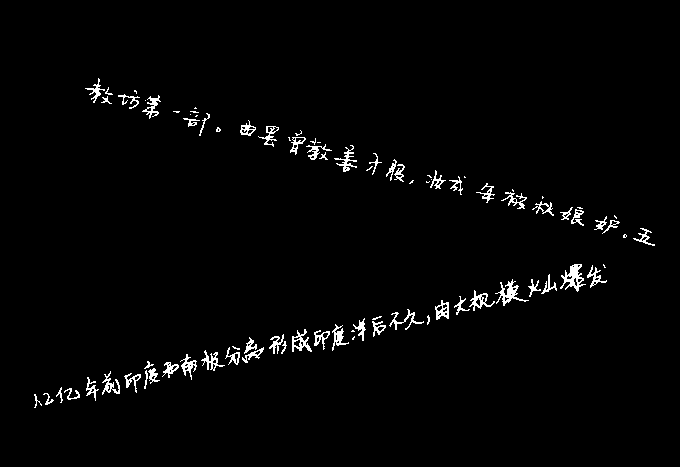 教坊第一部。曲罢曾教善才服,妆成每被秋娘妒。五
1.2亿年前印度和南极分离形成印度洋后不久,由大规模火山爆发